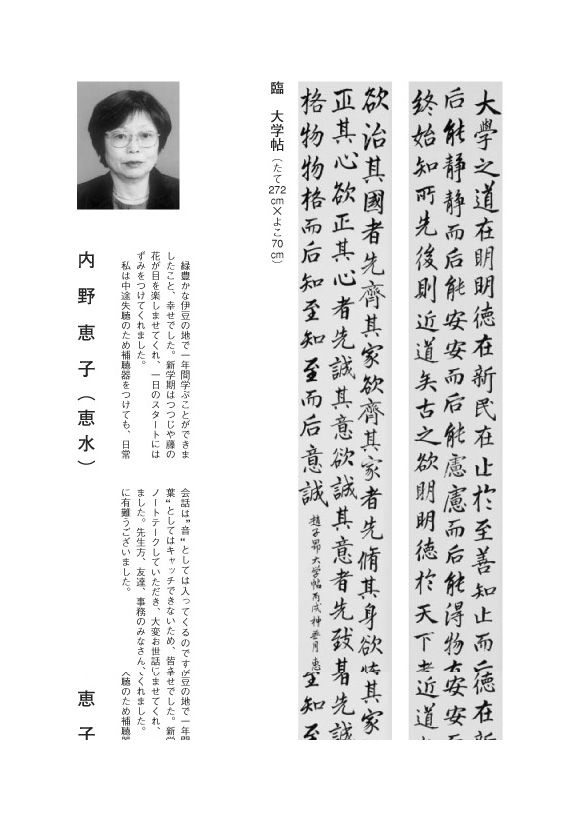 大學之道在明明徳在新民在止於至善知止而
后能静静而后能安安而后能慮慮而后能得物
終始知所先後則近道矣古之欲明明徳於天下
欲治其國者先齊其家欲齊其家者先脩其身欲
正其心欲正其心者先誠其意欲誠其意者先致
格物物格而后知至知至而后意誠
趙子昂大学帖丙戌神無月 恵
臨 大学帖（たて272cm×よこ70cm）
緑豊かな伊豆の地で一年間学ぶことができま
したこと、幸せでした。新学期はつつじや藤の
花が目を楽しませてくれ、一日のスタートには
ずみをつけてくれました。
私は中途失聴のため補聴器をつけても、日常
会話は”音“としては入ってくるのですが
葉“としてはキャッチできないため、皆
ノートテークしていただき、大変お世話
ました。先生方、友達、事務のみなさん、
に有難うございました。
内野恵子（恵水）
恵子